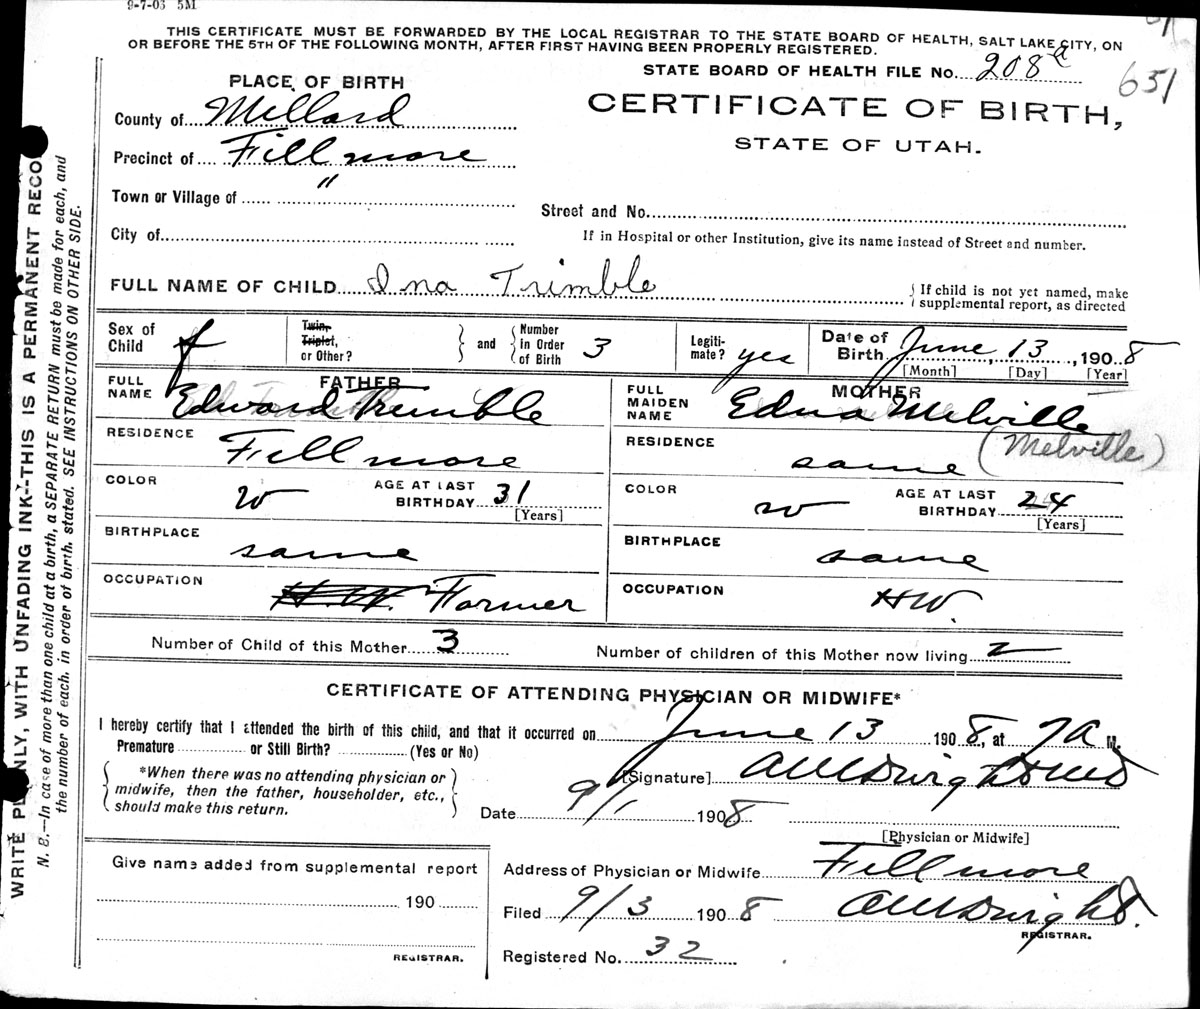 9-7-03 5M
THIS CERTIFICATE MUST BE FORWARDED BY THE LOCAL REGISTRAR TO THE STATE BOARD OF HEALTH, SALT LAKE CITY, ON
OR BEFORE THE 5TH OF THE FOLLOWING MONTH, AFTER FIRST HAVING BEEN PROPERLY REGISTERED.
STATE BOARD OF HEALTH FILE No. 208 a
651
PLACE OF BIRTH
CERTIFICATE OF BIRTH,
STATE OF UTAH.
County of Millard
Precinct of Fillmore
Town or Village of "
Street and No.
City of
If in Hospital or other Institution, give its name instead of Street and number.
FULL NAME OF CHILD Ina Trimble
If child is not yet named, make
supplemental report, as directed
Sex of Child f
Twin, Triplet, or Other?
and Number in Order of Birth 3
Legiti-mate? yes
Date of Birth June 13, 1908
[Month] [Day] [Year]
FATHER
FULL NAME Edward Trimble
MOTHER
FULL MAIDEN NAME Edna Melville
(Melville)
RESIDENCE Fillmore
RESIDENCE same
COLOR W
AGE AT LAST BIRTHDAY 31
[Years]
COLOR W
AGE AT LAST BIRTHDAY 24
[Years]
BIRTHPLACE same
BIRTHPLACE same
OCCUPATION H.W. Farmer
OCCUPATION HW.
Number of Child of this Mother 3
Number of children of this Mother now living 2
CERTIFICATE OF ATTENDING PHYSICIAN OR MIDWIFE*
I hereby certify that I attended the birth of this child, and that it occurred on June 13 1908, at 7 A M.
Premature or Still Birth? (Yes or No)
*When there was no attending physician or
midwife, then the father, householder, etc.,
should make this return.
[Signature] Dwight MD
Date 9/1 1908
[Physician or Midwife]
Give name added from supplemental report
190
REGISTRAR.
Address of Physician or Midwife Fillmore
Filed 9/3 1908 Dwight
REGISTRAR.
Registered No. 32
WRITE PLAINLY, WITH UNFADING INK--THIS IS A PERMANENT RECO
N. B.—In case of more than one child at a birth, a SEPARATE RETURN must be made for each, and
the number of each, in order of birth, stated. SEE INSTRUCTIONS ON OTHER SIDE.